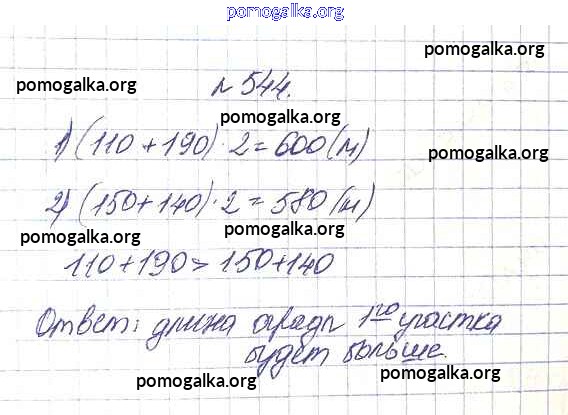 pomogalka.org
pomogalka.org
pomogalka.org
№ 544.
pomogalka.org
1) (110 + 190) · 2 = 600 (м)
pomogalka.org
2) (150 + 140) · 2 = 580 (м)
pomogalka.org
pomogalka.org
110 + 190 > 150 + 140
Ответ: длина ограды 1го участка
будет больше.
pomogalka.org
pomogalka.org